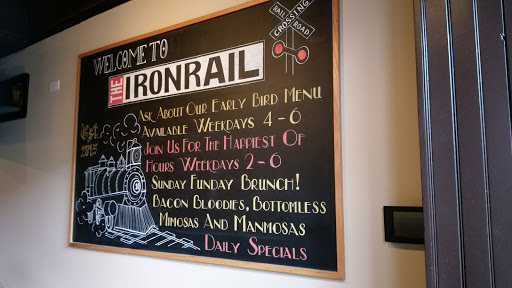 WELCOME TO
THE IRONRAIL
RAIL CROSSING ROAD
ASK ABOUT OUR EARLY BIRD MENU
AVAILABLE WEEKDAYS 4-6
JOIN US FOR THE HAPPIEST OF
HOURS WEEKDAYS 2-6
SUNDAY FUNDAY BRUNCH!
BACON BLOODIES, BOTTOMLESS
MIMOSAS AND MANMOSAS
DAILY SPECIALS
Est.